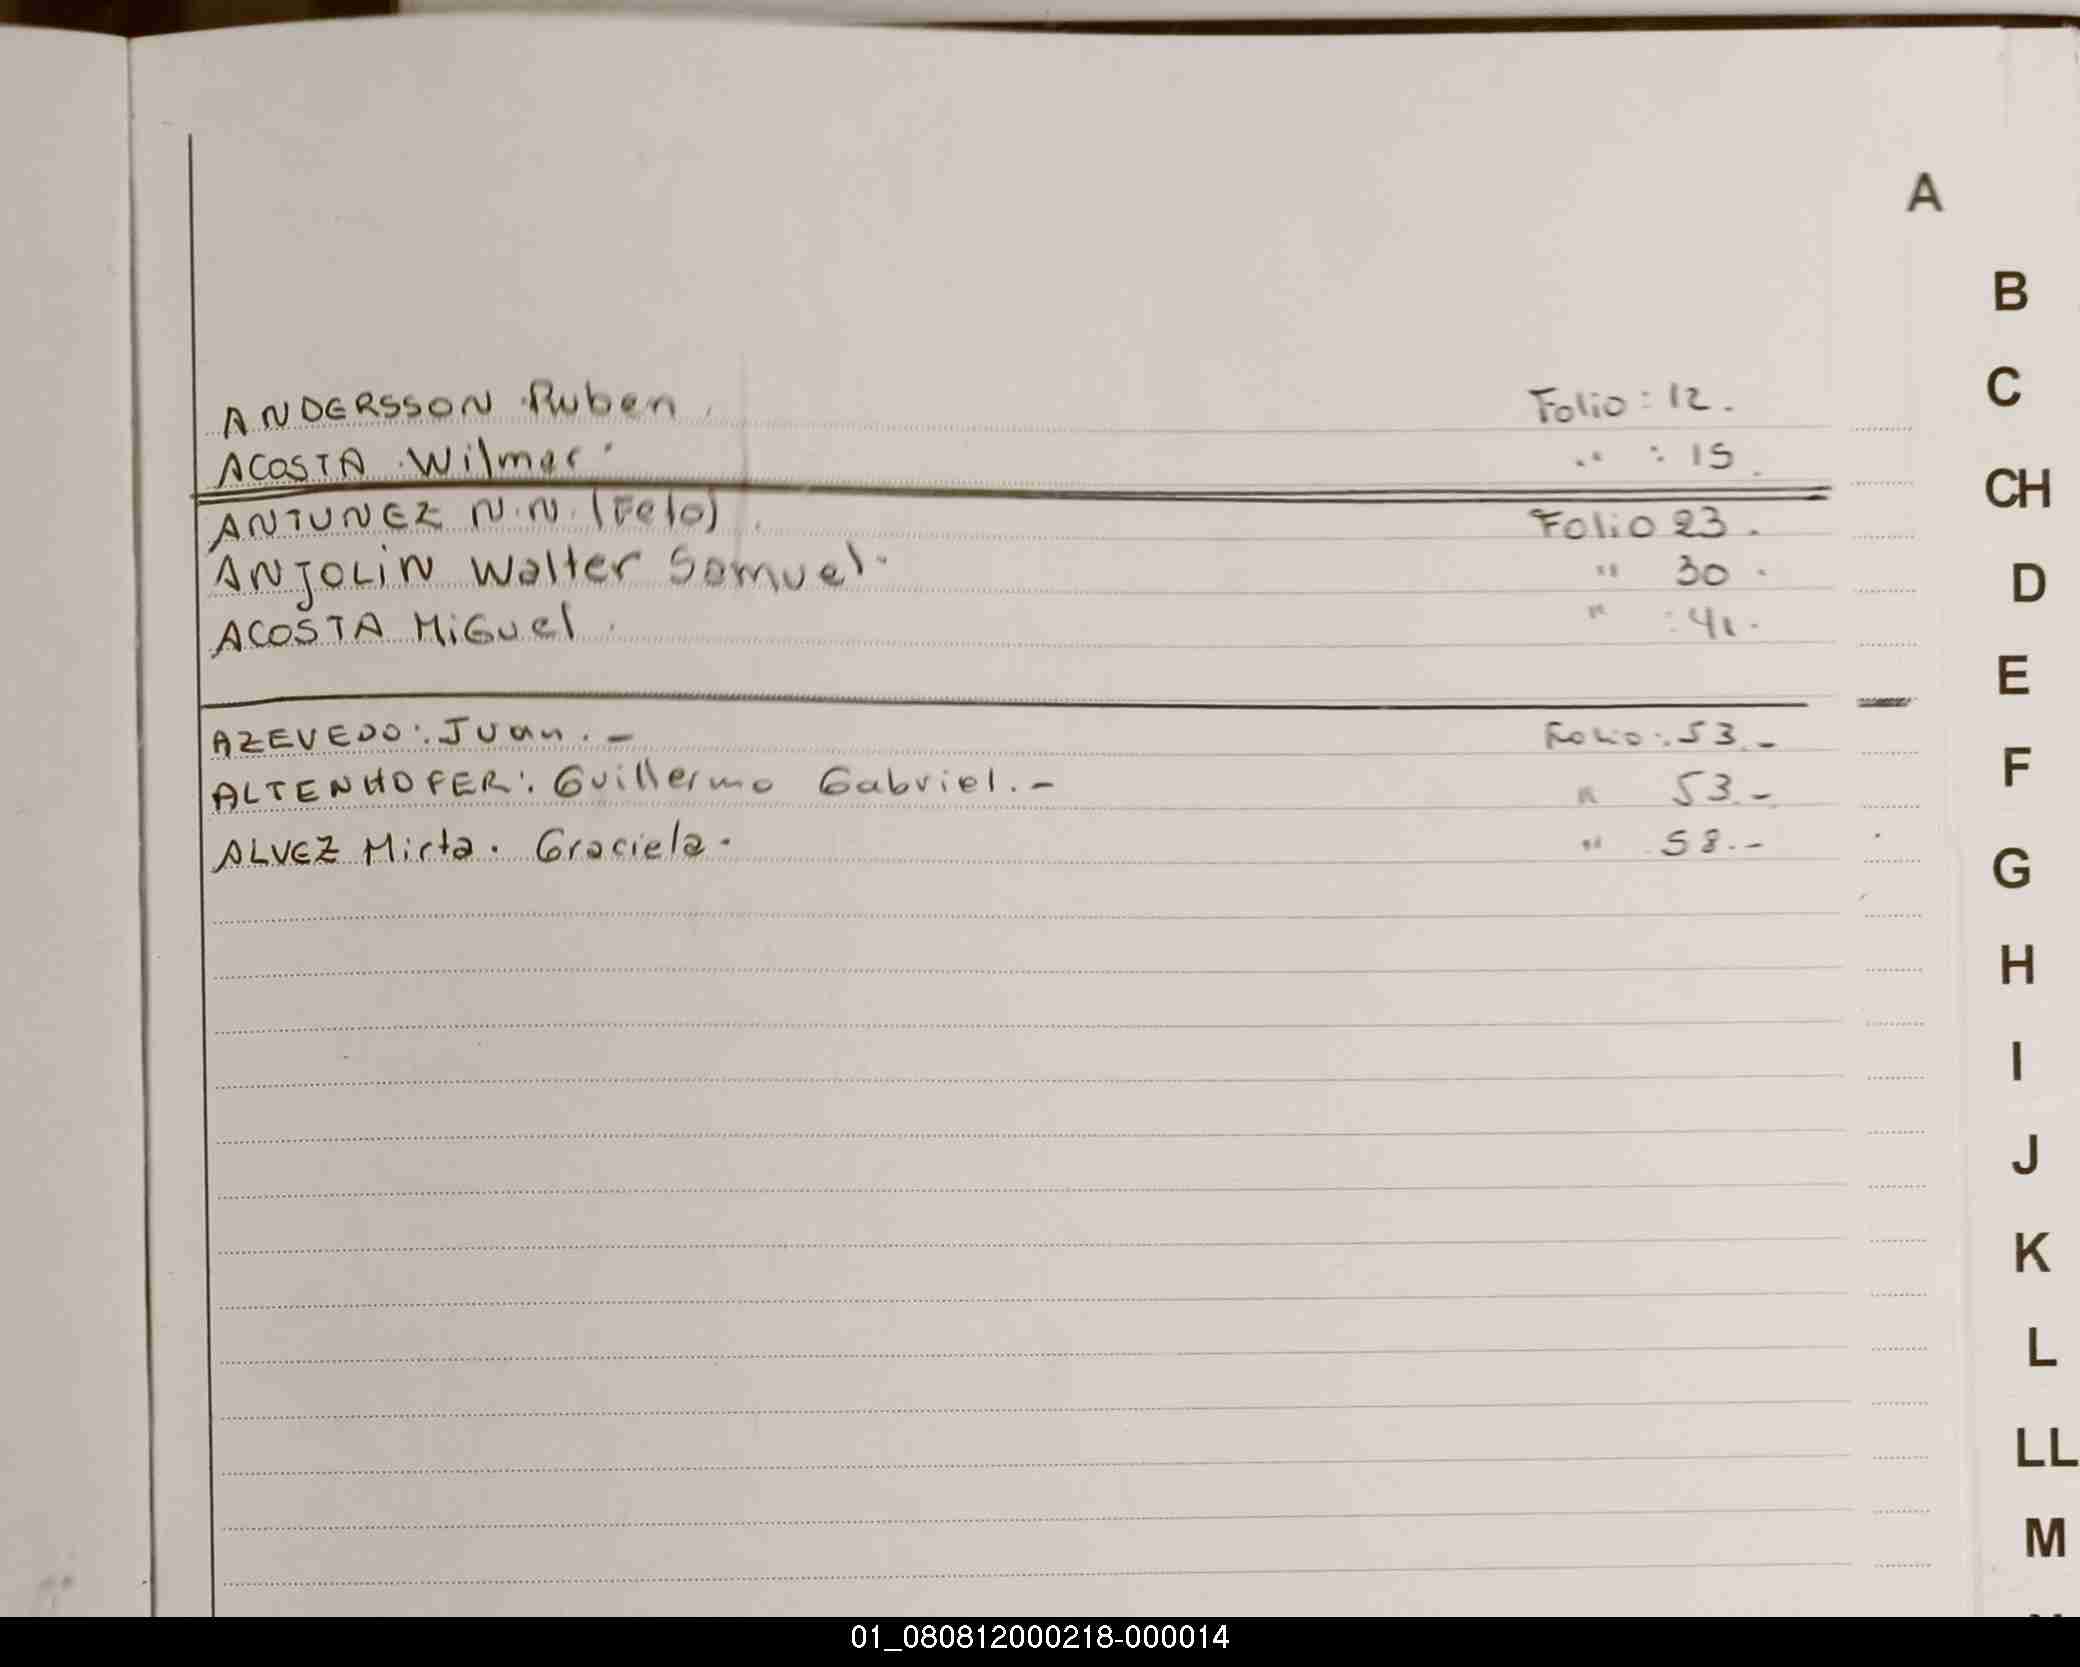 A
B
C
CH
D
E
F
G
H
I
J
K
L
LL
M
ANDERSSON Ruben. Folio: 12.
ACOSTA Wilmer. " : 15.
ANTUNEZ N.N. (Feto). Folio 23.
ANJOLIN Walter Samuel. " 30.
ACOSTA MiGuel. " : 41.
AZEVEDO: Juan.- Folio: 53.-
ALTENHOFER: Guillermo Gabriel.- " 53.-
ALVEZ Mirta. Graciela. " 58.-
01_080812000218-000014